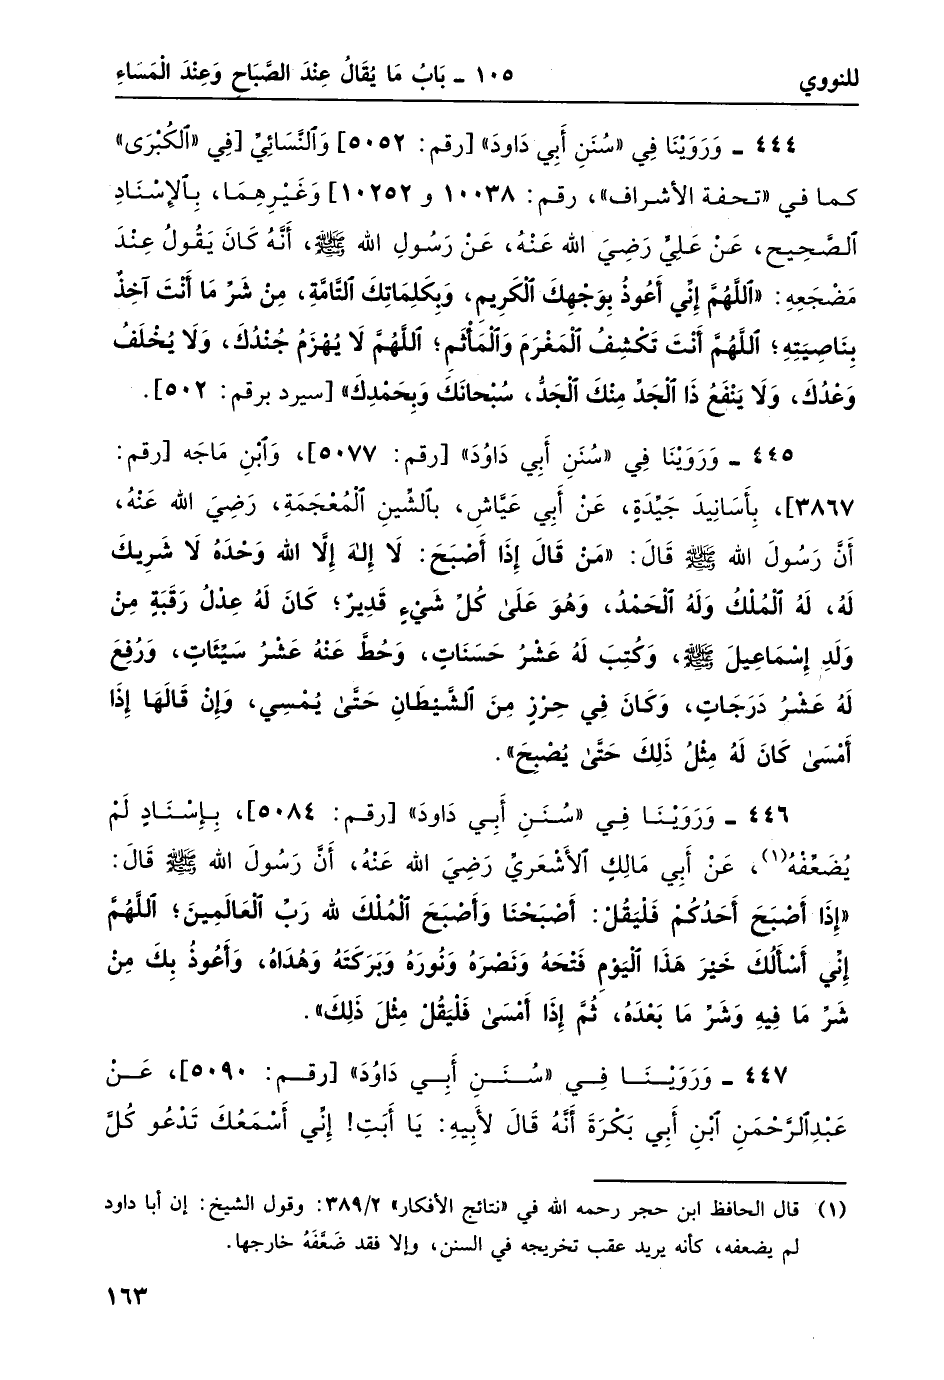 للنووي ١٠٥ ـ بَابُ مَا يُقَالُ عِنْدَ الصَّبَاحِ وَعِنْدَ الْمَسَاءِ
٤٤٤ ـ وَرَوَيْنَا فِي «سُنَنِ أَبِي دَاودَ» [رقم: ٥٠٥٢] وَٱلنَّسَائِيِّ [فِي «ٱلْكُبْرَى»
كما في «تحفة الأشراف»، رقم: ١٠٠٣٨ و ١٠٢٥٢] وَغَيْرِهِمَا، بِٱلإِسْنَادِ
ٱلصَّحِيحِ، عَنْ عَلِيٍّ رَضِيَ الله عَنْهُ، عَنْ رَسُولِ الله ﷺ، أَنَّهُ كَانَ يَقُولُ عِنْدَ
مَضْجَعِهِ: «ٱللَّهُمَّ إِنِّي أَعُوذُ بِوَجْهِكَ ٱلْكَرِيمِ، وَبِكَلِمَاتِكَ ٱلتَّامَّةِ، مِنْ شَرِّ مَا أَنْتَ آخِذٌ
بِنَاصِيَتِهِ؛ ٱللَّهُمَّ أَنْتَ تَكْشِفُ ٱلْمَغْرَمَ وَٱلْمَأْثَمَ؛ ٱللَّهُمَّ لَا يُهْزَمُ جُنْدُكَ، وَلَا يُخْلَفُ
وَعْدُكَ، وَلَا يَنْفَعُ ذَا ٱلْجَدِّ مِنْكَ ٱلْجَدُّ، سُبْحَانَكَ وَبِحَمْدِكَ» [سيرد برقم: ٥٠٢].
٤٤٥ ـ وَرَوَيْنَا فِي «سُنَنِ أَبِي دَاوُدَ» [رقم: ٥٠٧٧]، وَٱبْنِ مَاجَه [رقم:
٣٨٦٧]، بِأَسَانِيدَ جَيِّدَةٍ، عَنْ أَبِي عَيَّاشٍ، بٱلشِّينِ ٱلْمُعْجَمَةِ، رَضِيَ الله عَنْهُ،
أَنَّ رَسُولَ الله ﷺ قَالَ: «مَنْ قَالَ إِذَا أَصْبَحَ: لَا إِلهَ إِلَّا الله وَحْدَهُ لَا شَرِيكَ
لَهُ، لَهُ ٱلْمُلْكُ وَلَهُ ٱلْحَمْدُ، وَهُوَ عَلَىٰ كُلِّ شَيْءٍ قَدِيرٌ؛ كَانَ لَهُ عِدْلُ رَقَبَةٍ مِنْ
وَلَدِ إِسْمَاعِيلَ ﷺ، وَكُتِبَ لَهُ عَشْرُ حَسَنَاتٍ، وَحُطَّ عَنْهُ عَشْرُ سَيِّئَاتٍ، وَرُفِعَ
لَهُ عَشْرُ دَرَجَاتٍ، وَكَانَ فِي حِرْزٍ مِنَ ٱلشَّيْطَانِ حَتَّىٰ يُمْسِي، وَإِنْ قَالَهَا إِذَا
أَمْسَىٰ كَانَ لَهُ مِثْلُ ذَلِكَ حَتَّىٰ يُصْبِحَ».
٤٤٦ ـ وَرَوَيْنَا فِي «سُنَنِ أَبِي دَاودَ» [رقم: ٥٠٨٤]، بِإِسْنَادٍ لَمْ
يُضَعِّفْهُ(١)، عَنْ أَبِي مَالِكٍ ٱلأَشْعَرِيِّ رَضِيَ الله عَنْهُ، أَنَّ رَسُولَ الله ﷺ قَالَ:
«إِذَا أَصْبَحَ أَحَدُكُمْ فَلْيَقُلْ: أَصْبَحْنَا وَأَصْبَحَ ٱلْمُلْكُ لله رَبِّ ٱلْعَالَمِينَ؛ ٱللَّهُمَّ
إِنِّي أَسْأَلُكَ خَيْرَ هَذَا ٱلْيَوْمِ فَتْحَهُ وَنَصْرَهُ وَنُورَهُ وَبَرَكَتَهُ وَهُدَاهُ، وَأَعُوذُ بِكَ مِنْ
شَرِّ مَا فِيهِ وَشَرِّ مَا بَعْدَهُ، ثُمَّ إِذَا أَمْسَىٰ فَلْيَقُلْ مِثْلَ ذَلِكَ».
٤٤٧ ـ وَرَوَيْنَا فِي «سُنَنِ أَبِي دَاوُدَ» [رقم: ٥٠٩٠]، عَنْ
عَبْدِٱلرَّحْمَنِ ٱبْنِ أَبِي بَكْرَةَ أَنَّهُ قَالَ لأَبِيهِ: يَا أَبَتِ! إِنِّي أَسْمَعُكَ تَدْعُو كُلَّ
(١) قال الحافظ ابن حجر رحمه الله في «نتائج الأفكار» ٣٨٩/٢: وقول الشيخ: إن أبا داود
لم يضعفه، كأنه يريد عقب تخريجه في السنن، وإلا فقد ضَعَّفَهُ خارجها.
١٦٣